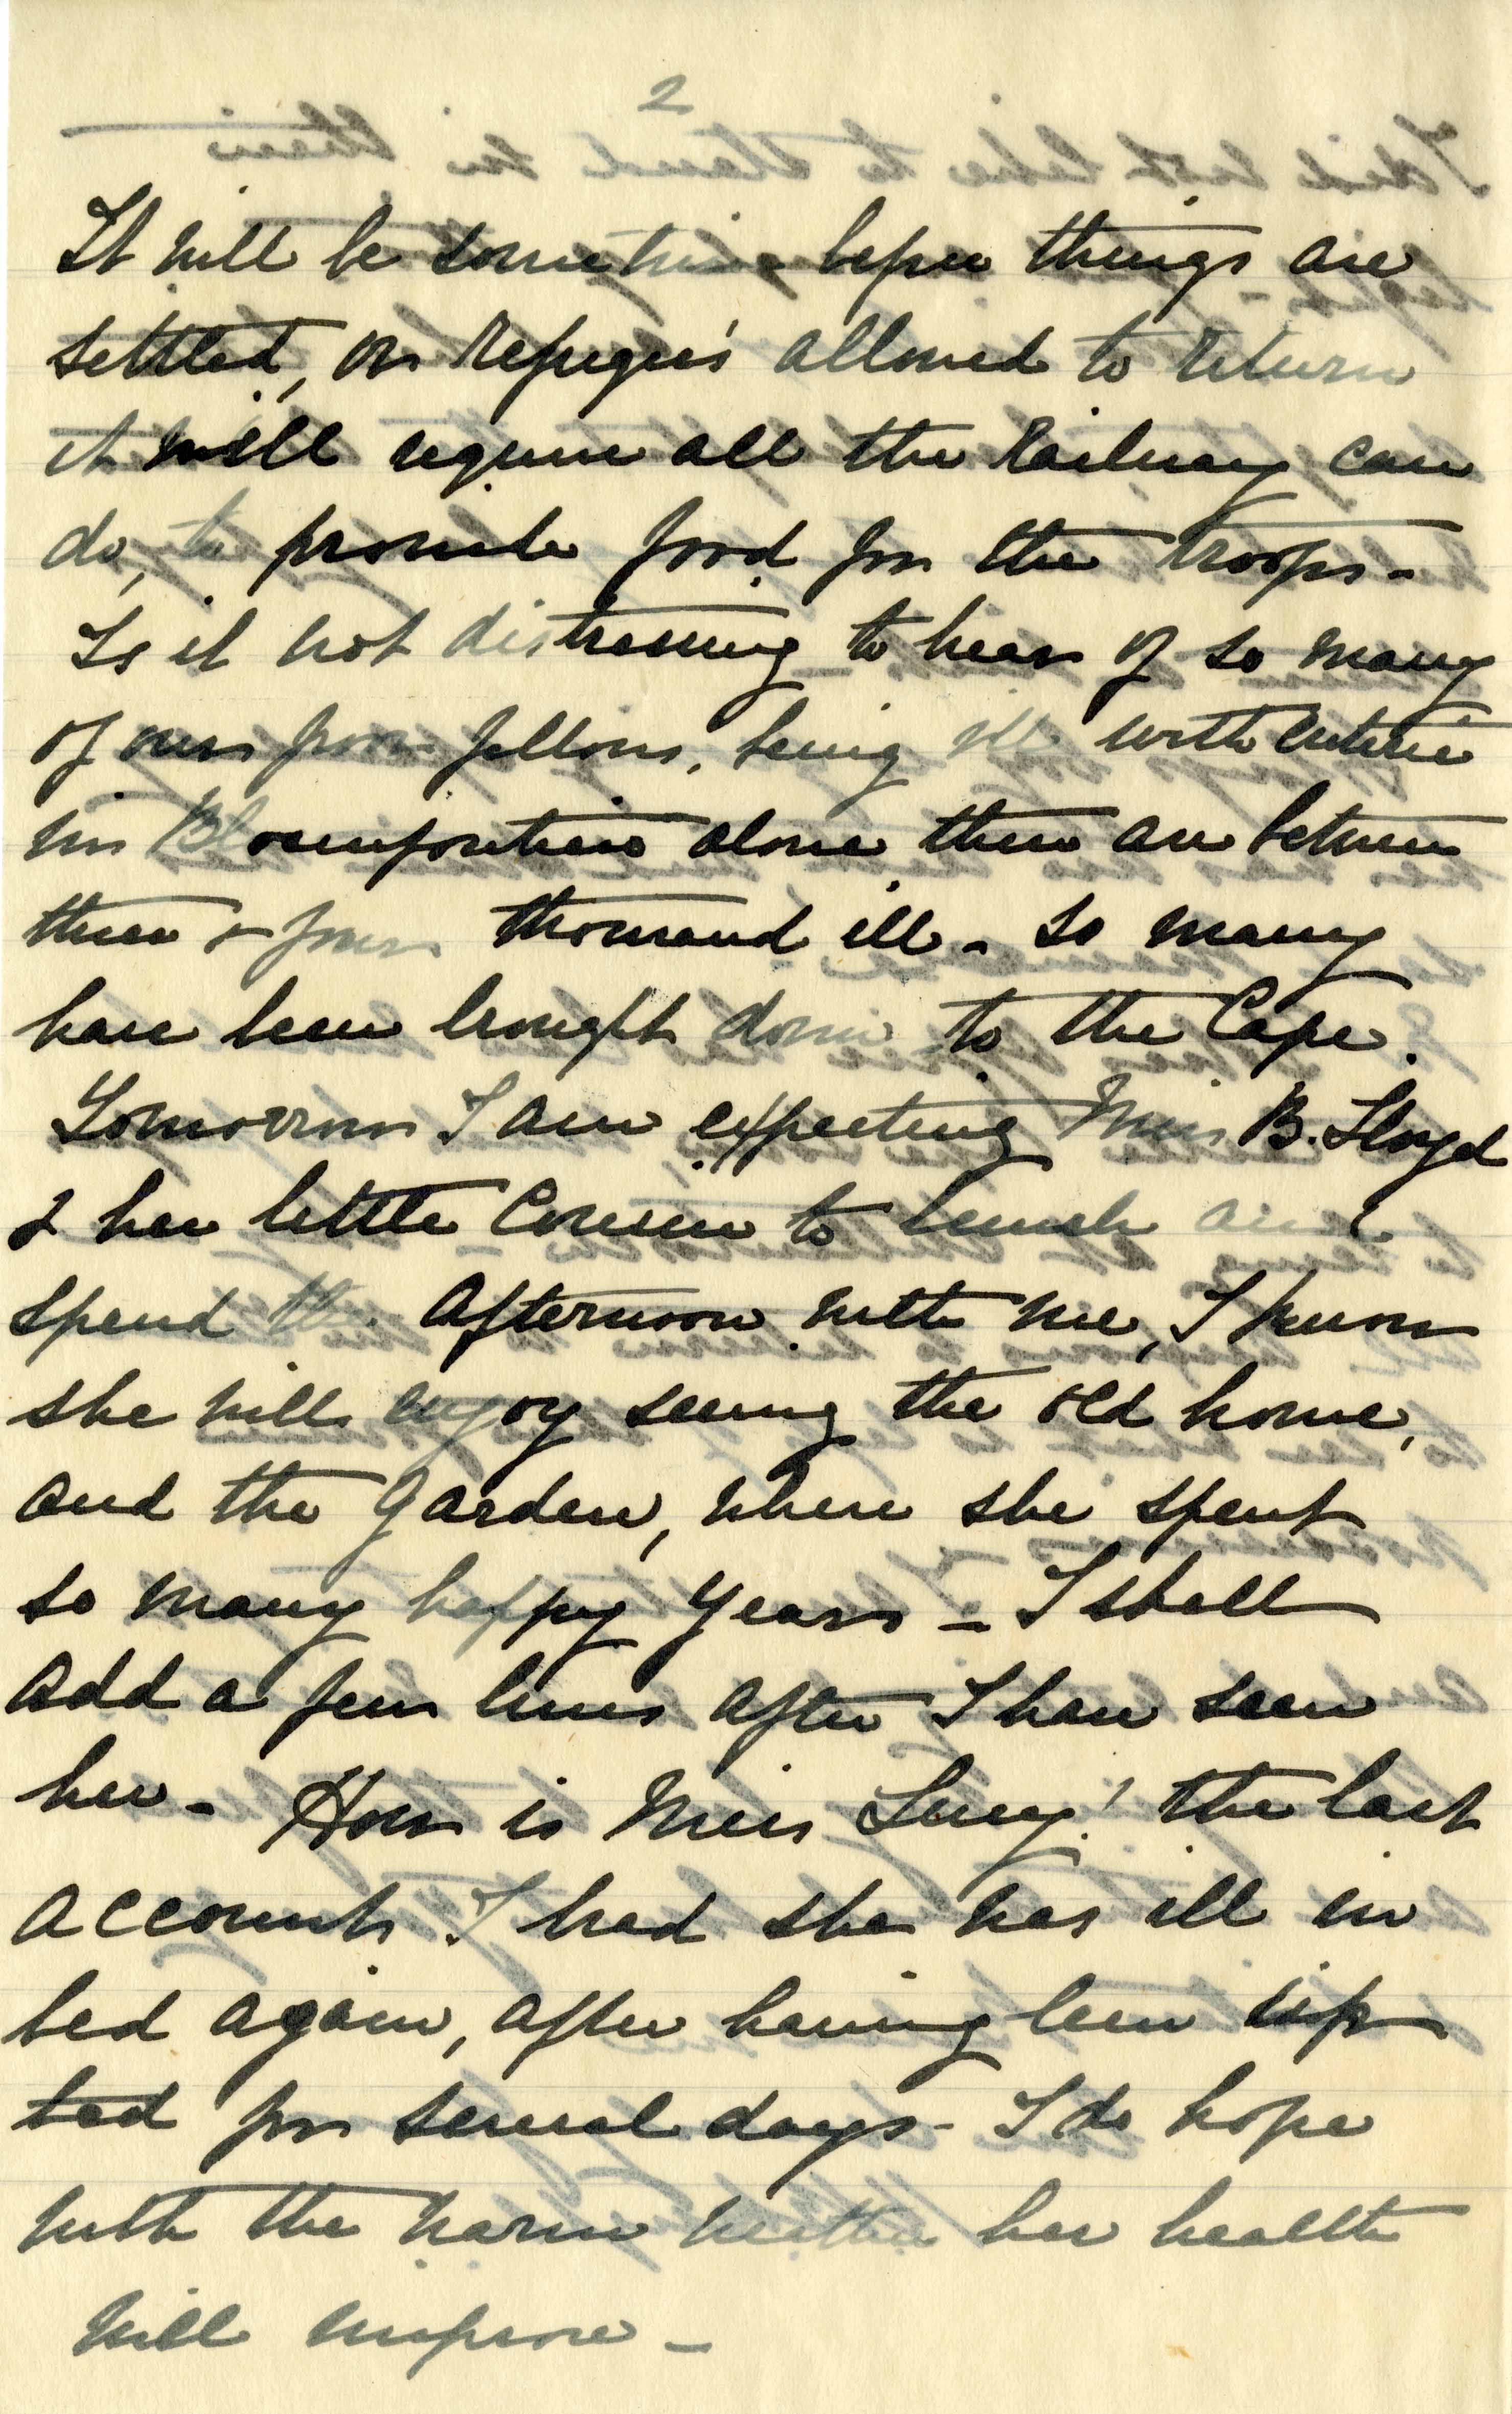 2
It will be sometime before things are
settled, or Refugee's allowed to return
it will require all the Railway can
do, to provide food for the troops -
Is it not distressing to hear of so many
of our poor fellows, being ill with enteric
in Bloemfontein alone there are between
three & four thousand ill - so many
have been brought down to the Cape.
Tomorrow I am expecting Miss B. Lloyd
& her little Cousin to lunch and
spend the afternoon with me, I know
she will enjoy seeing the old home,
and the Garden, where she spent
so many happy years - I shall
add a few lines after I have seen
her - How is Miss Lucy! the last
accounts I had she was ill in
bed again, after having been up
bed for several days - I do hope
with the warm weather her health
will improve -